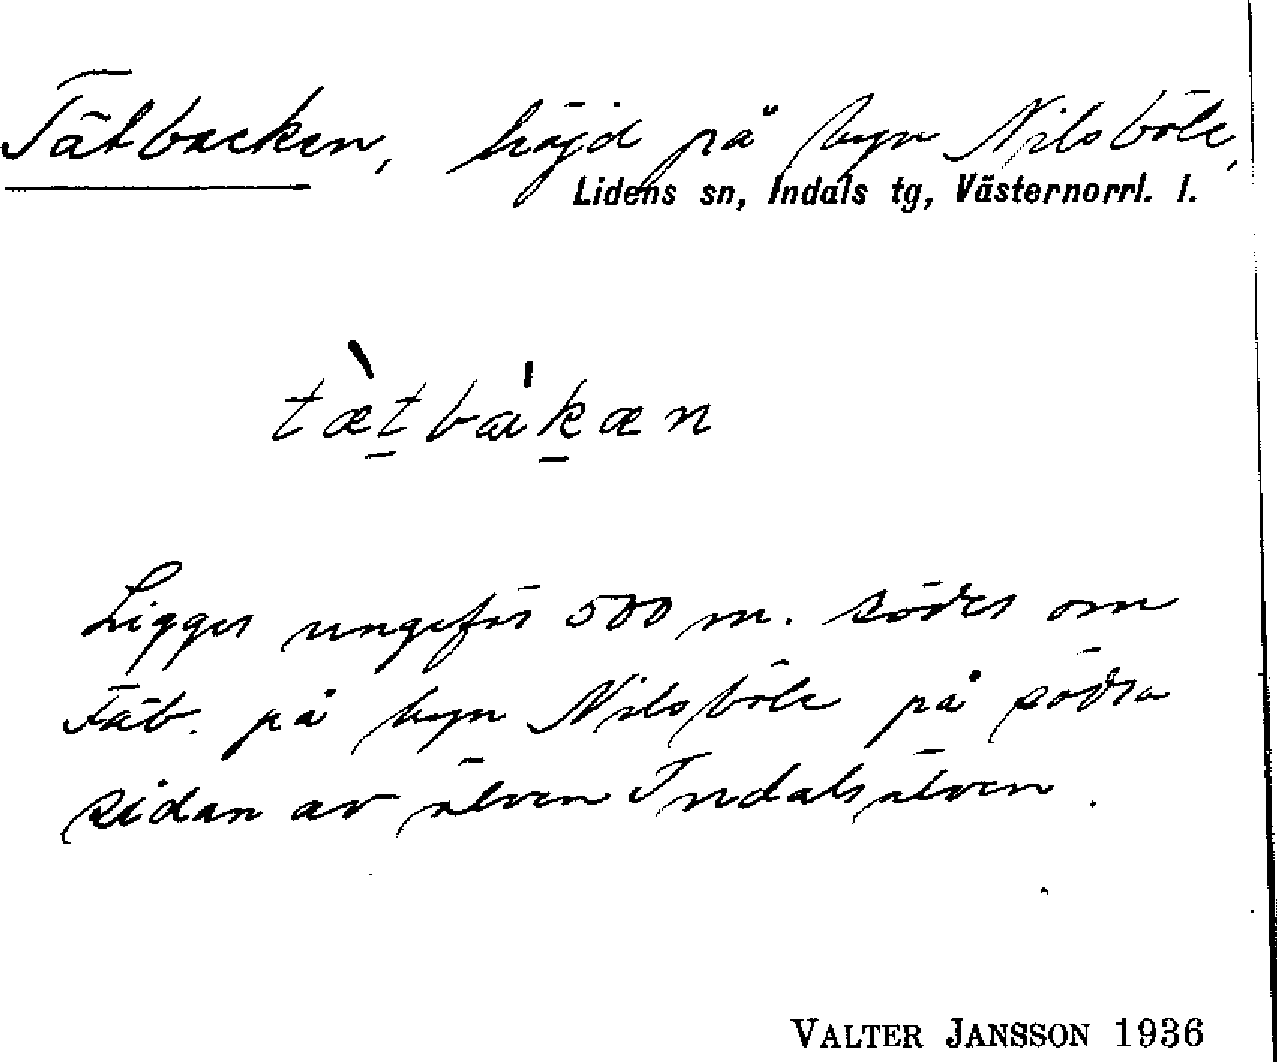 Tätbacken, höjd på byn Nilsböle,
Lidens sn, Indals tg, Västernorrl. l.
tæ̀t̠bɑˈk̠æn
Ligger ungefär 500 m. söder om
Fäb. på byn Nilsböle på södra
sidan av älven Indalsälven.
VALTER JANSSON 1936